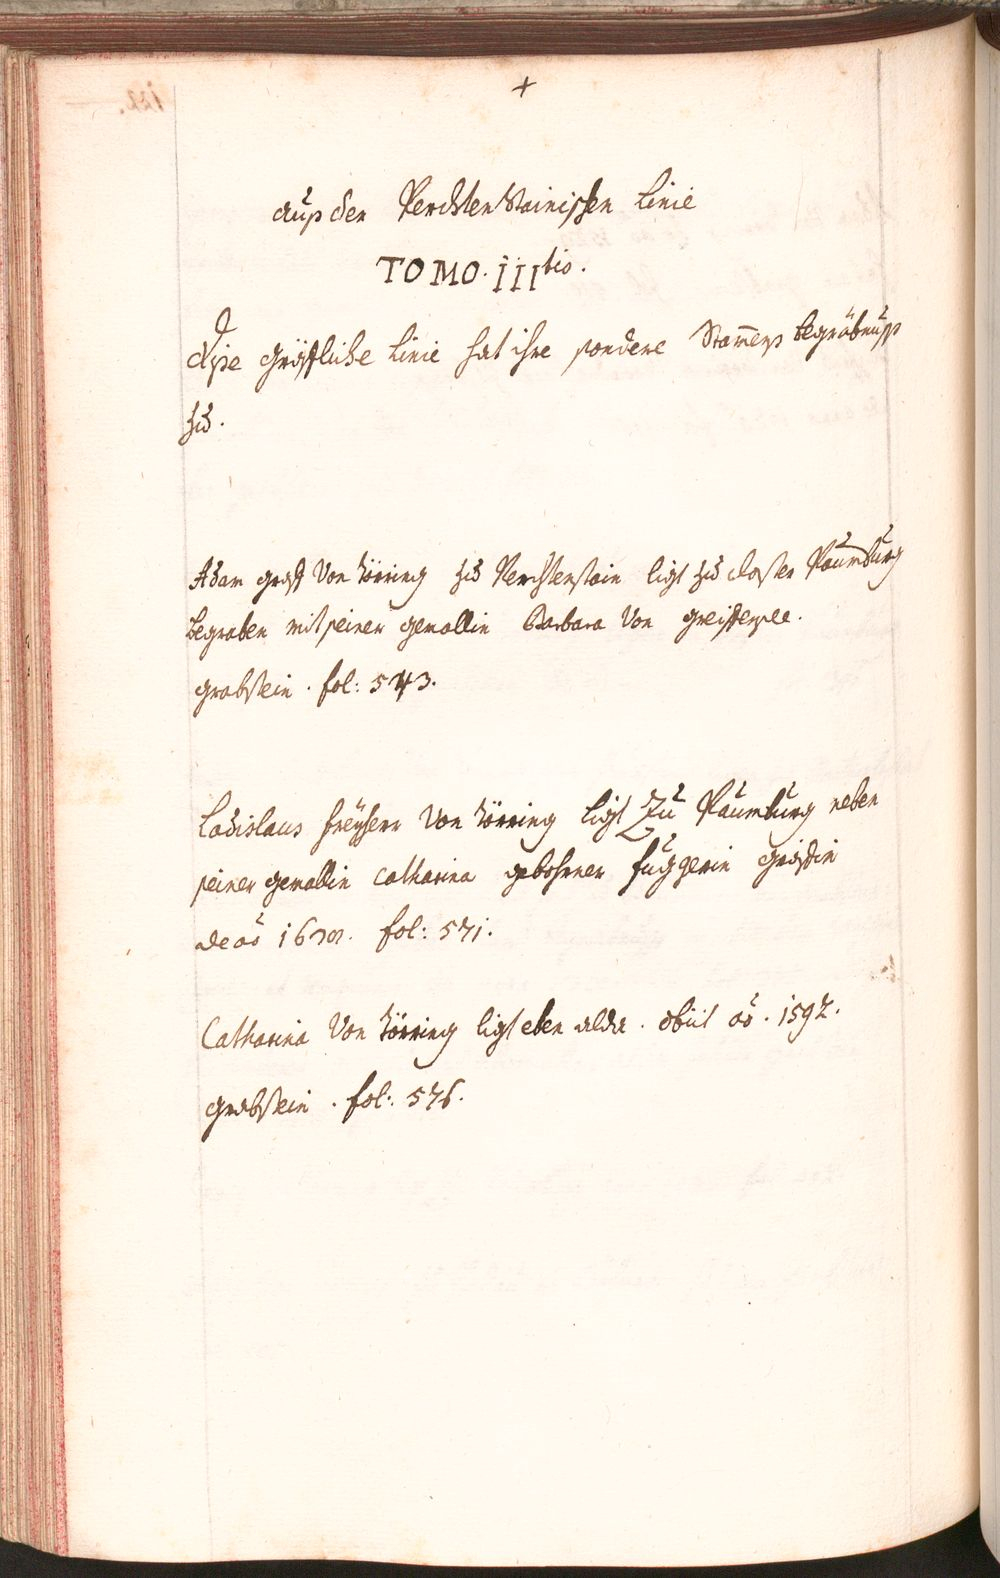 +
auß der Perchtenstainischen Linie
TOMO. III tio.
Dise gräffliche Linie hat ihre sondere Stam̄enß begräbnuß
zu.
Adam graff Von Törring zu Perchtenstain ligt zu closter Paumburg
begraben mit seiner gemallin Barbara Von
grabstein. fol: 543.
Ladislaus freyherr Von Törring ligt Zu Paumburg neben
seiner gemallin catharina gebohrner fuggerin gräffin
de aō fol: 571.
Catharina Von Törring ligt eben alda. obiit aō. 1592.
grabstein. fol: 576.